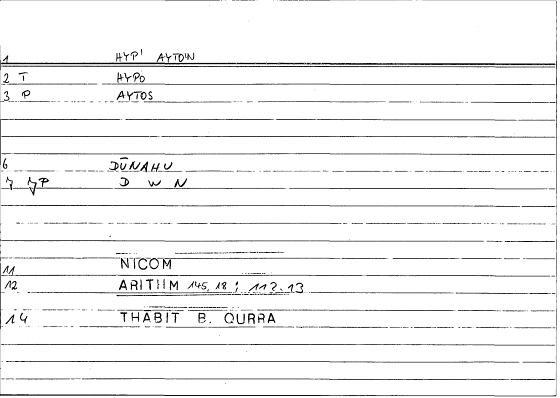 1 HYP' AYTOW
2 T HYPO
3 P AYTOS
6 DŪNAHU
7 7P D W N
11 NICOM
12 ARITHM 145,18 ; 112.13
14 THABIT B. QURRA